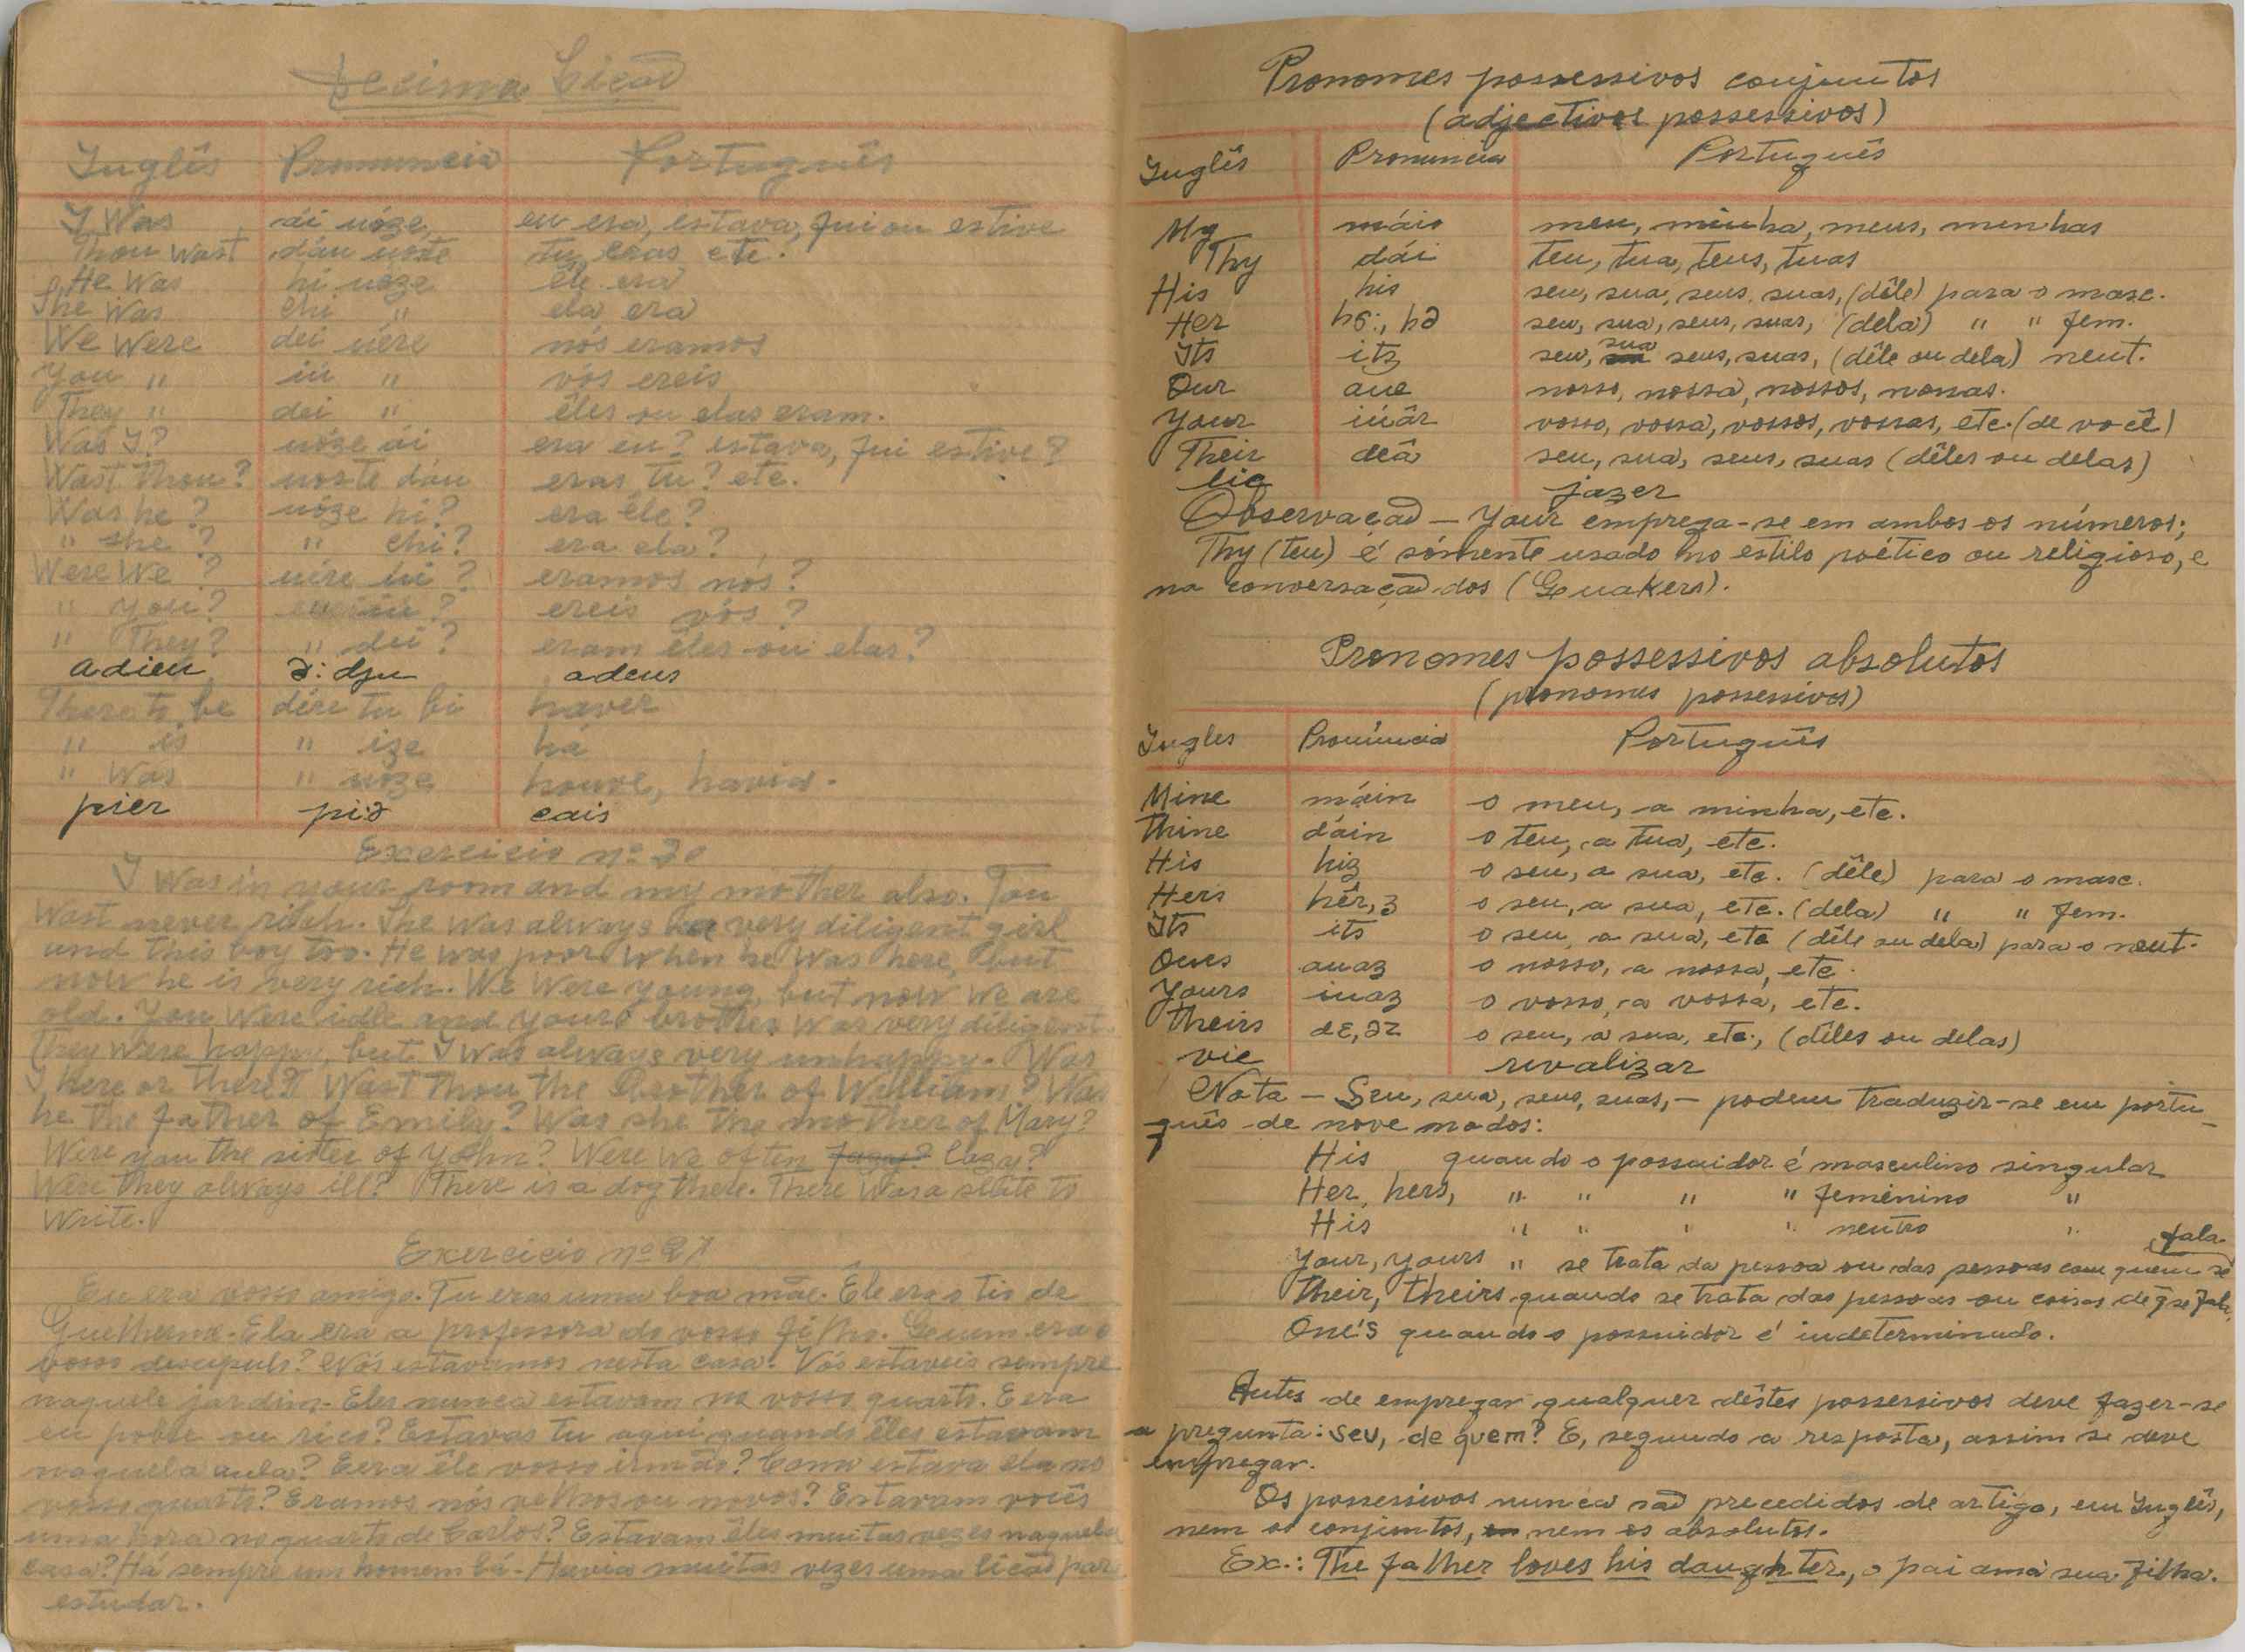 Decima Lição
Inglês Pronuncia Português
I Was ái uóze eu era, estava, fui ou estive
Thou Wast dáu uóste tu eras etc.
He Was hi uóze êle era
She Was chi " ela era
We Were dei uére nós eramos
You " iú " vós ereis
They " dei " êles ou elas eram.
Was I? uóze ái era eu? estava, fui estive?
Wast Thou? uoste dáu eras tu? etc.
Was he? uóze hi? era êle?
" she? " chi? era ela?
Were We? uére úi? eramos nós?
" you? iú? ereis vós?
" They? " dei? eram êles ou elas?
adieu ə: dju adeus
There to be dére tu bi haver
" is " ize há
" Was " uóze houve, havia.
pier piə cais
Exercicio nº 20
I Was in your room and my mother also. Tou
Wast never rich. She Was always a very diligent girl
und this boy too. He was poor When he Was here, but
now he is very rich. We Were young, but now We are
old. You Were idle and yours brother Was very diligent.
They were happy, but I Was always very unhappy. Was
I here or there? Wast Thou the brother of William? Was
he the father of Emily? Was she the mother of Mary?
Were you the sister of John? Were We often fazy? lazy?
Were they always ill? There is a dog there. There Was a slate to
Write.
Exercicio nº 21
Eu era vosso amigo. Tu eras uma boa mãe. Êle era o tio de
Guilherme. Ela era a professora do vosso filho. Quem era o
vosso discipulo? Nós estavamos nesta casa. Vós estaveis sempre
naquele jardim. Eles nunca estavam no vosso quarto. Eera
eu pobre ou rico? Estavas tu aqui quando êles estavam
naquela aula? Eera êle vosso irmão? Como estava ela no
vosso quarto? Eramos nós velhos ou novos? Estavam vocês
uma hora no quarto de Carlos? Estavam êles muitas vezes naquela
casa? Há sempre um homem lá. Havia muitas vezes uma lição para
estudar.
Pronomes possessivos conjuntos
(adjectivos possessivos)
Inglês Pronuncia Português
My máio meu, minha, meus, menhas
Thy dái teu, tua, teus, tuas
His his seu, sua, seus, suas, (dêle) para o masc.
Her hə:, hə seu, sua, seus, suas, (dela) " " fem.
Its itz seu, sua seus, suas, (dêle ou dela) neut.
Our aue nosso, nossa, nossos, nossas.
Your iúâr vosso, vossa, vossos, vossas, etc. (de você)
Their deâ seu, sua, seus, suas (dêles ou delas)
lie jazer
Observação — Your emprega-se em ambos os números;
Thy (teu) é sómente usado no estilo poético ou religioso, e
na conversação dos (Quakers).
Pronomes possessivos absolutos
(pronomes possessivos)
Ingles Pronúncia Português
Mine máin o meu, a minha, etc.
Thine dáin o teu, a tua, etc.
His hiz o seu, a sua, etc. (dêle) para o masc.
Hers hêr,z o seu, a sua, etc. (dela) " " fem.
Its its o seu, a sua, etc (dêle ou dela) para o neut.
Ours auaz o nosso, a nossa, etc.
Yours iuaz o vosso, a vossa, etc.
Theirs dɛ,əz o seu, a sua, etc., (dêles ou delas)
vie rivalizar
Nota — Seu, sua, seus, suas, — podem traduzir-se em portu-
guês de nove modos:
His quando o possuidor é masculino singular
Her, hers, " " " " femenino "
His " " " " neutro "
fala
Your, yours " se trata da pessoa ou das pessoas com quem se
Their, theirs quando se trata das pessoas ou coisas de q̄ se fala,
One's quando o possuidor é indeterminado.
Antes de empregar qualquer dêstes possessivos deve fazer-se
a pregunta: seu, de quem? E, segundo a resposta, assim se deve
empregar.
Os possessivos nunca são precedidos de artigo, em Inglês,
nem os conjuntos, nem os absolutos.
Ex.: The father loves his daughter, o pai ama sua filha.